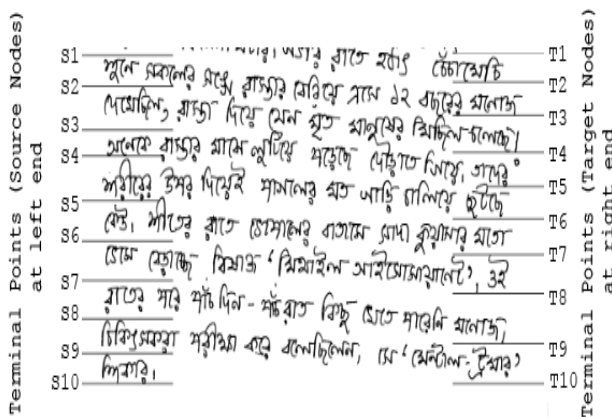 Terminal Points (Source Nodes)
at left end
S1
S2
S3
S4
S5
S6
S7
S8
S9
S10
রাতে হঠাৎ চেঁচামেচি
শুনে সকলের সঙ্গে রাস্তায় বেরিয়ে এসে ১২ বছরের মনোজ
দেখেছিল, রাস্তা দিয়ে যেন মৃত মানুষের মিছিল চলেছে।
অনেকে রাস্তার মাঝে লুটিয়ে পড়েছে দৌড়াতে গিয়ে, তাদের
শরীরের উপর দিয়েই পাগলের মত গাড়ি চালিয়ে ছুটছে
কেউ, শীতের রাতে ভোপালের বাতাসে সাদা কুয়াশার মতো
ভেসে বেড়াচ্ছে বিষাক্ত 'মিথাইল আইসোসায়ানেট', ওই
রাতের পরে পাঁচ দিন - পাঁচ রাত কিছু খেতে পারেনি মনোজ,
চিকিৎসকরা পরীক্ষা করে বলেছিলেন, সে 'মেন্টাল-ট্রমার'
শিকার।
T1
T2
T3
T4
T5
T6
T7
T8
T9
T10
Terminal Points (Target Nodes)
at right end